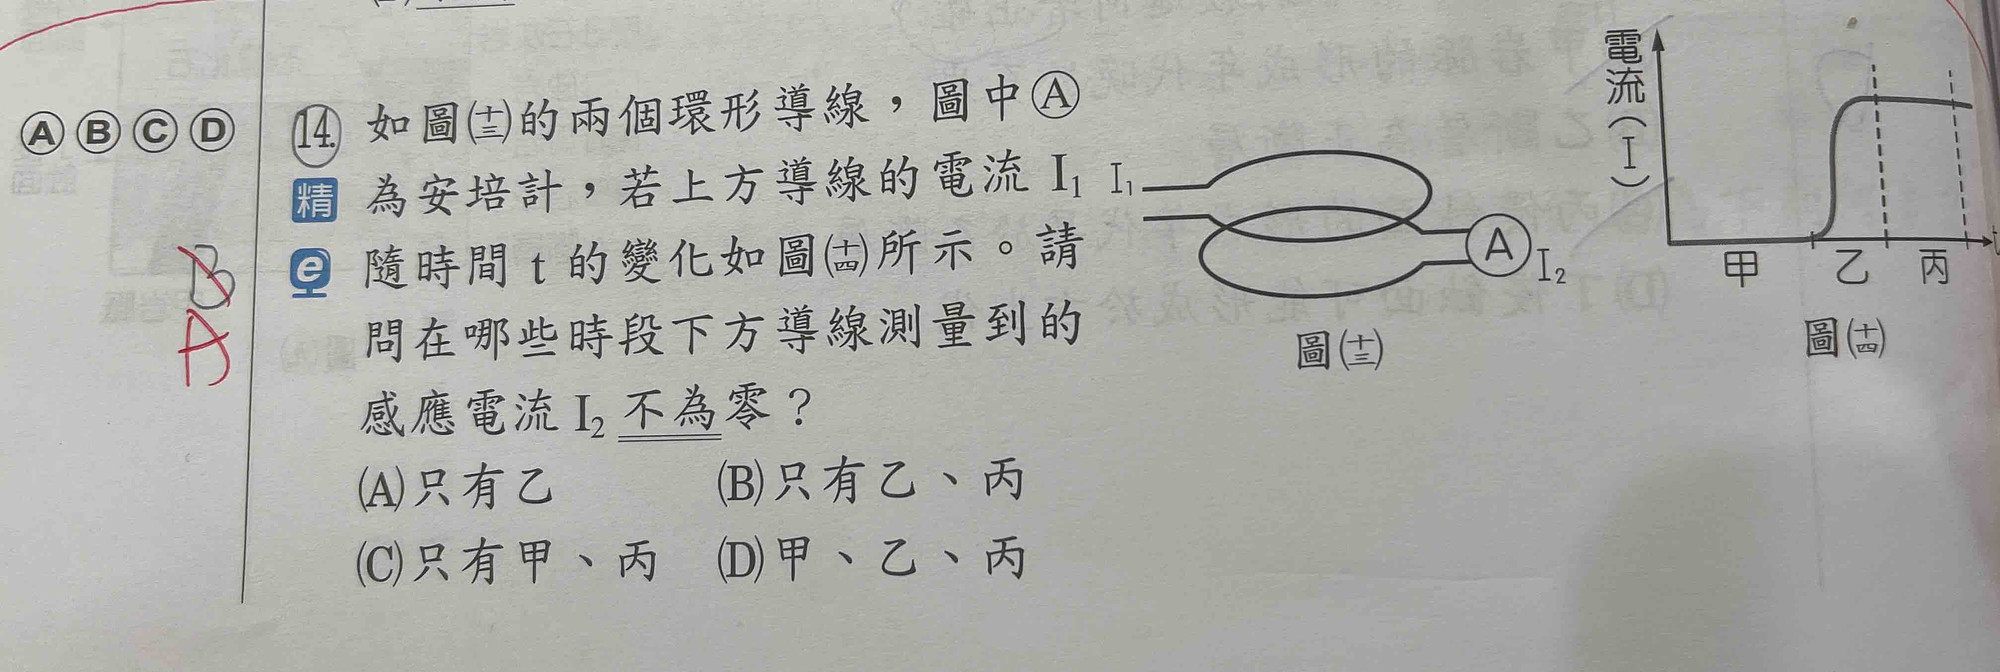 Ⓐ Ⓑ Ⓒ Ⓓ
14. 如圖(十三)的兩個環形導線，圖中Ⓐ
精 為安培計，若上方導線的電流 I₁
e 隨時間 t 的變化如圖(十四)所示。請
問在哪些時段下方導線測量到的
感應電流 I₂ 不為零？
(A)只有乙 (B)只有乙、丙
(C)只有甲、丙 (D)甲、乙、丙
B
A
I₁
A
I₂
圖(十三)
電流(I)
甲 乙 丙 t
圖(十四)